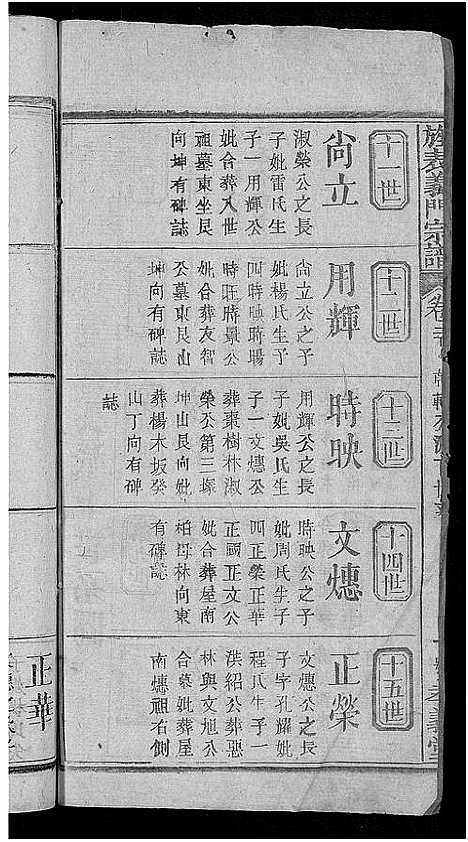 旌表義門宗譜
十一世
尙立
淑榮公之長
子妣雷氏生
子一用輝公
妣合葬入世
祖墓東坐艮
向坤有碑誌
十二世
用輝
尙立公之子
妣楊氏生子
四時映時暘
時旺時景公
妣合葬友智
公墓東艮山
坤向有碑誌
十三世
時映
用輝公之長
子妣吳氏生
子一文㷰公
葬棗樹林淑
榮公第三塚
坤山艮向妣
葬楊木坂癸
山丁向有碑
誌
十四世
文㷰
時映公之子
妣周氏生子
四正榮正華
正國正文公
妣合葬屋南
柏母林向東
有碑誌
十五世
正榮
文㷰公之長
子字孔耀妣
程氏生子一
洪紹公葬惡
林與文旭公
合墓妣葬屋
南㷰祖右側
正華